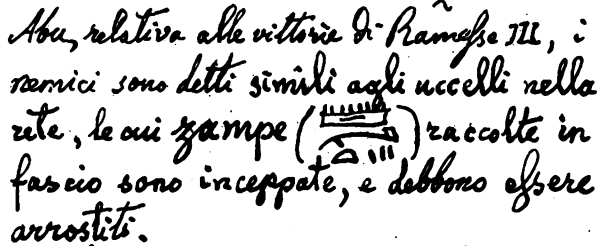 Abu, relativa alle vittorie di Ram̃eſse III, i
nemici sono detti simili agli uccelli nella
rete, le cui zampe ( ) raccolte in
fascio sono inceppate, e debbono eſsere
arrostiti.